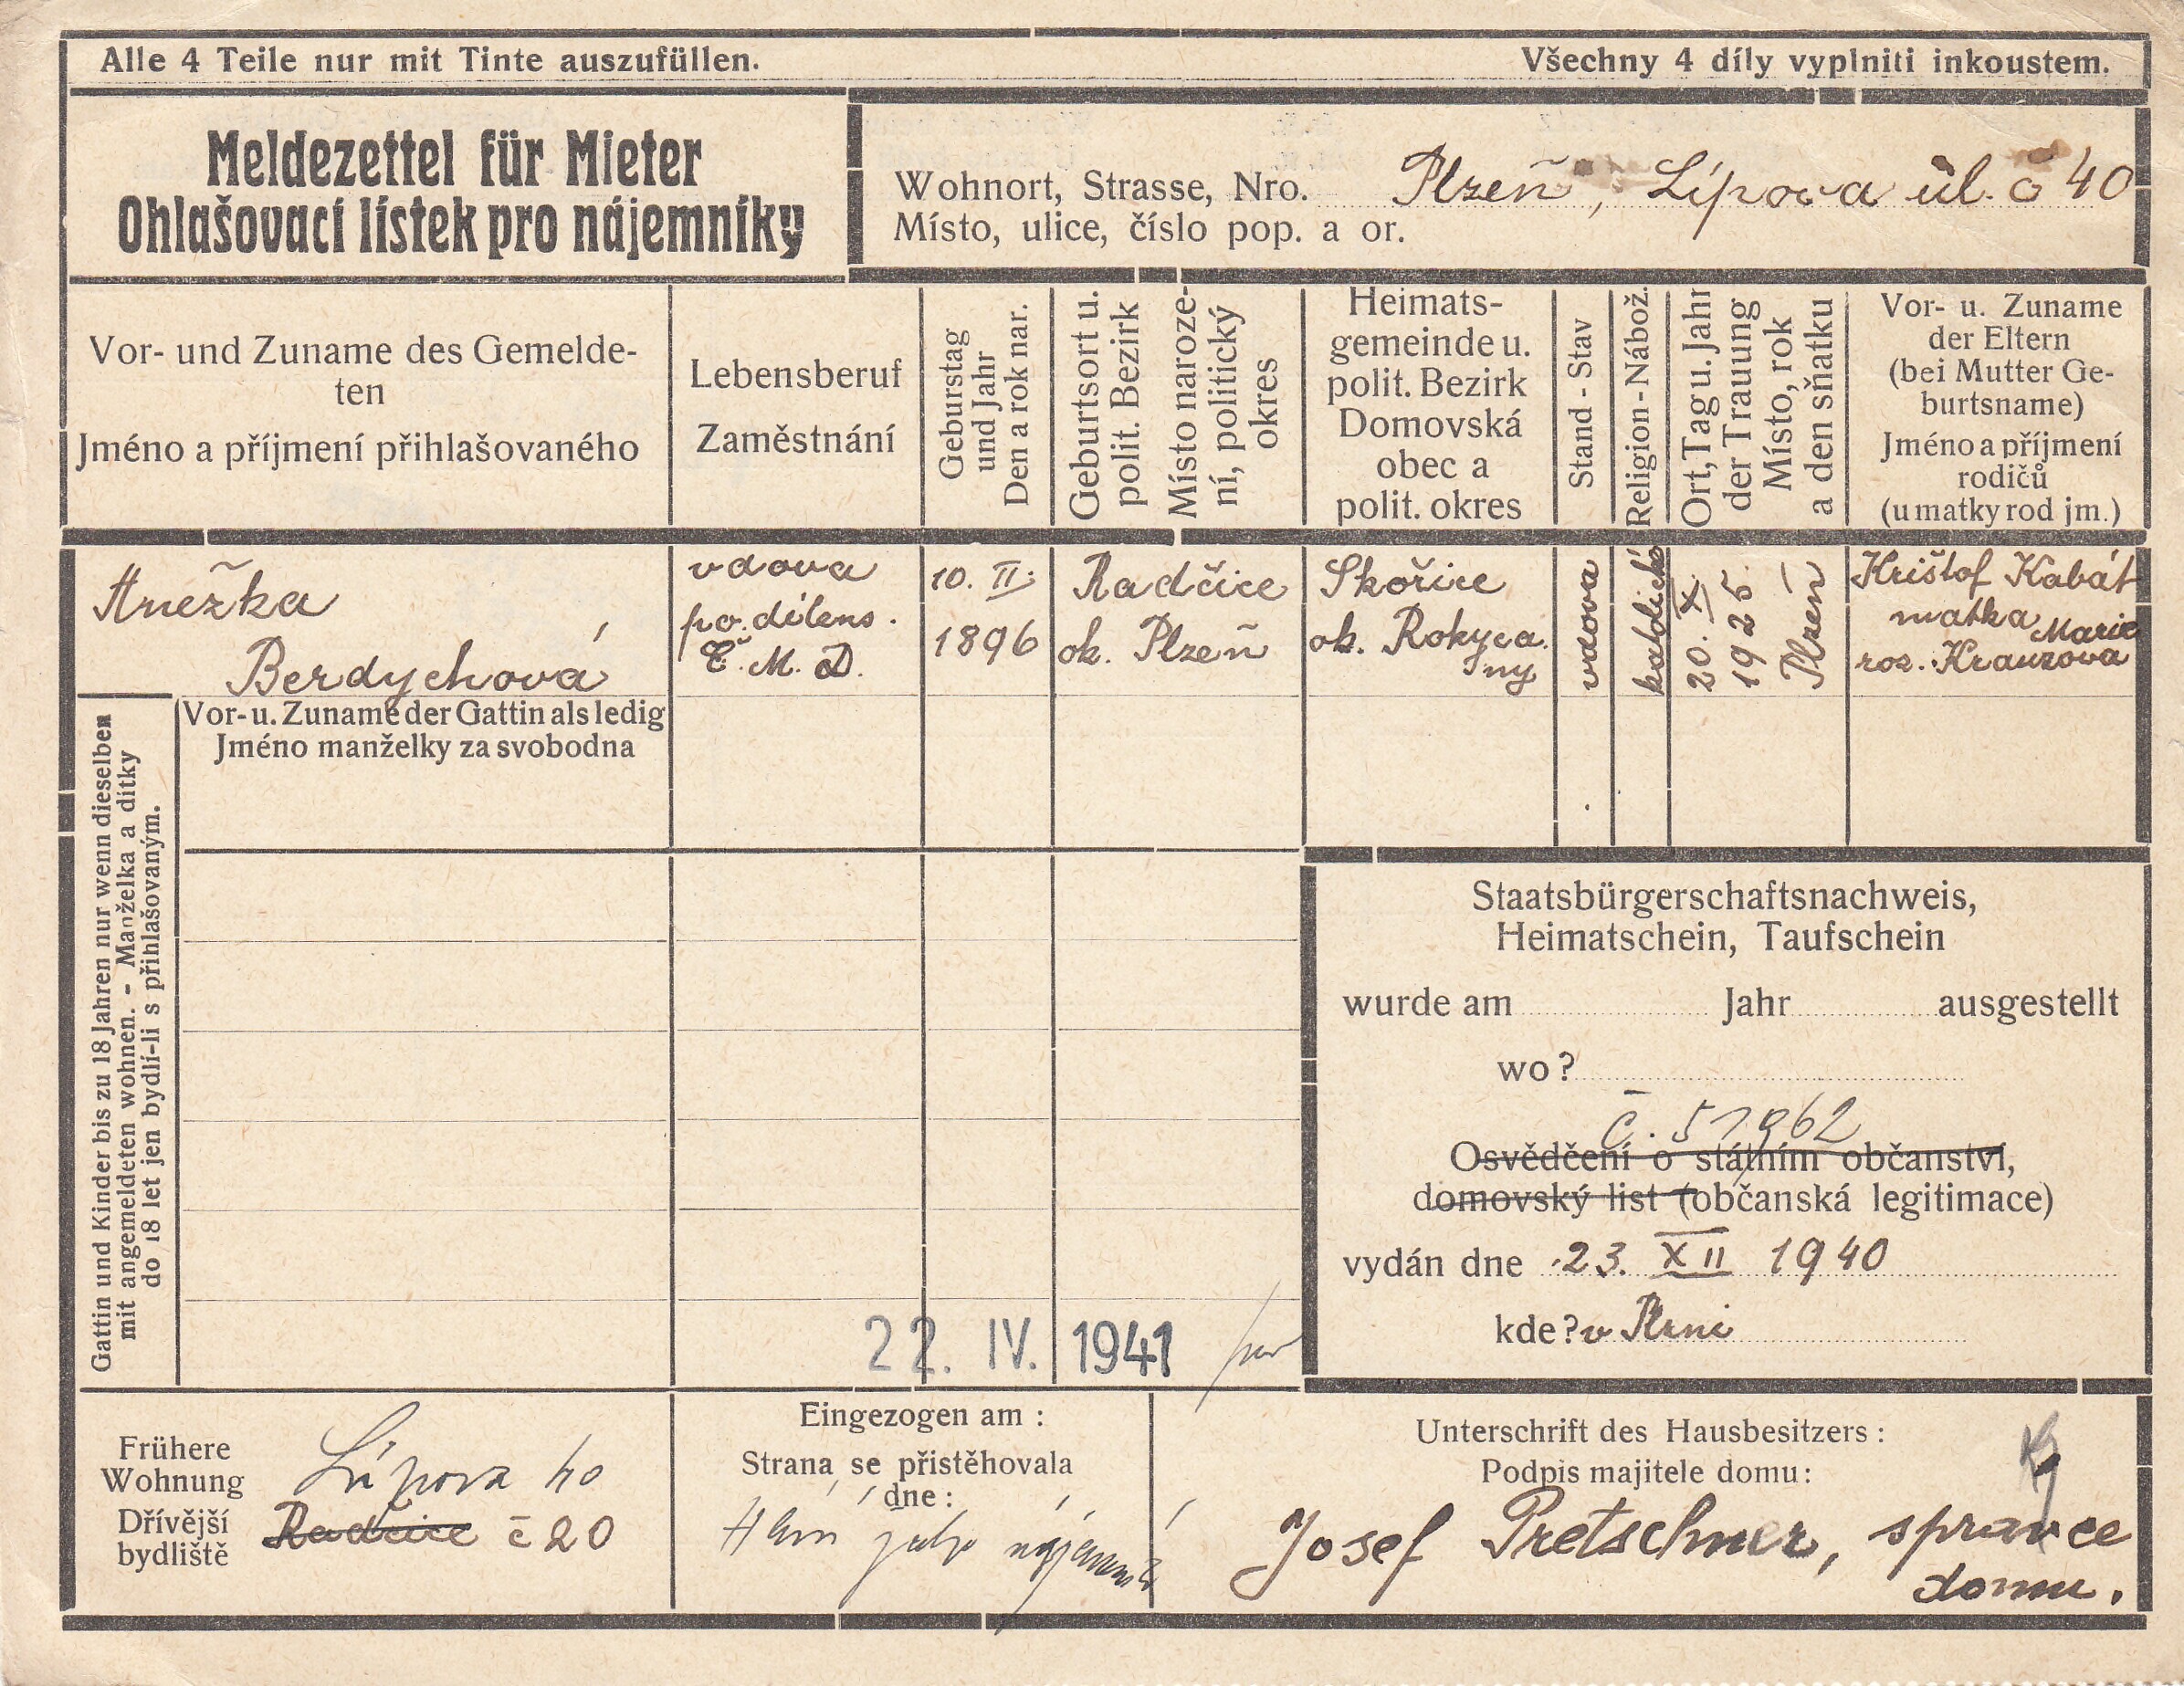 Alle 4 Teile nur mit Tinte auszufüllen.
Všechny 4 díly vyplniti inkoustem.
Meldezettel für Mieter
Ohlašovací lístek pro nájemníky
Wohnort, Strasse, Nro. Plzeň, Lípova ul. č 40
Místo, ulice, číslo pop. a or.
Vor- und Zuname des Gemelde-
ten
Jméno a příjmení přihlašovaného
Lebensberuf
Zaměstnání
Geburstag
und Jahr
Den a rok nar.
Geburtsort u.
polit. Bezirk
Místo naroze-
ní, politický
okres
Heimats-
gemeinde u.
polit. Bezirk
Domovská
obec a
polit. okres
Stand - Stav
Religion - Nábož.
Ort, Tag u. Jahr
der Trauung
Místo, rok
a den sňatku
Vor- u. Zuname
der Eltern
(bei Mutter Ge-
burtsname)
Jméno a příjmení
rodičů
(u matky rod jm.)
Anežka
Berdychová
vdova
po dílens.
Č. M. D.
10. II.
1896
Radčice
ok. Plzeň
Skořice
ok. Rokyca
ny
vdova
katolické
20. X.
1925.
Plzeň
Krištof Kabát
matka Marie
roz. Krauzova
Vor- u. Zuname der Gattin als ledig
Jméno manželky za svobodna
Gattin und Kinder bis zu 18 Jahren nur wenn dieselben
mit angemeldeten wohnen. - Manželka a dítky
do 18 let jen bydlí-li s přihlašovaným.
Staatsbürgerschaftsnachweis,
Heimatschein, Taufschein
wurde am Jahr ausgestellt
wo?
č. 51962
Osvědčení o státním občanství,
domovský list (občanská legitimace)
vydán dne 23. XII 1940
kde? v Plzni
22. IV. 1941
Frühere
Wohnung
Dřívější
bydliště
Lípova 40
Radčice č 20
Eingezogen am :
Strana se přistěhovala
dne :
jako
Unterschrift des Hausbesitzers :
Podpis majitele domu :
Josef Pretschner, správce
domu.